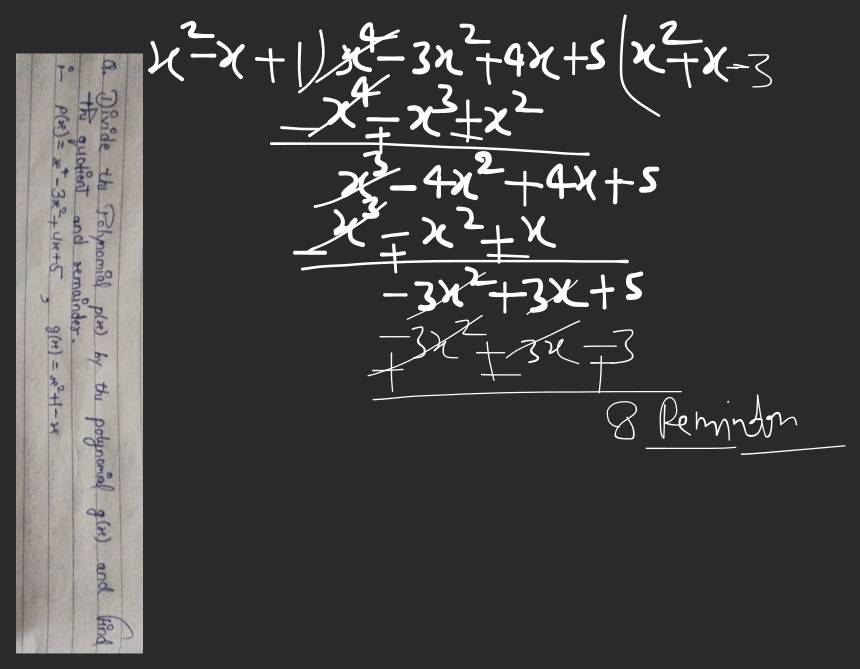 Q. Divide the Polynomial p(x) by the polynomial g(x) and find
the quotient and remainder.
i- p(x) = x⁴ - 3x² + 4x + 5 , g(x) = x² + 1 - x
x² - x + 1) x⁴ - 3x² + 4x + 5 (x² + x - 3
x⁴ - x³ + x²
- + -
x³ - 4x² + 4x + 5
x³ - x² + x
- + -
-3x² + 3x + 5
-3x² + 3x - 3
+ - +
8 Remindon